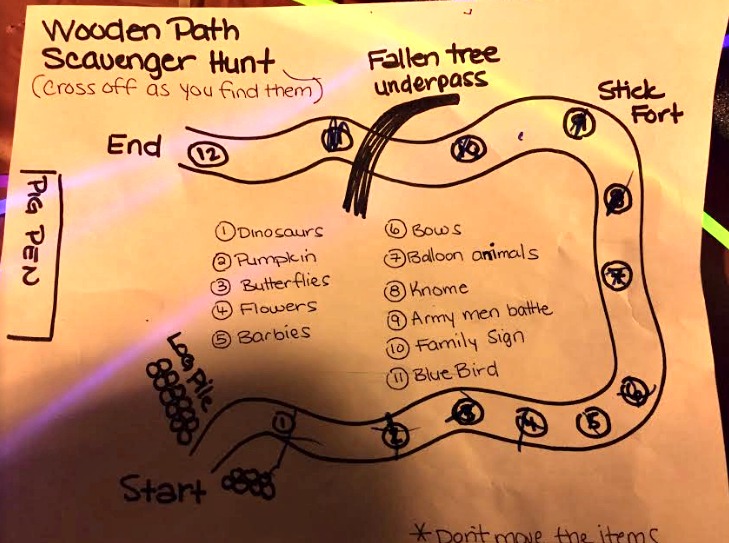 Wooden Path
Scavenger Hunt
(Cross off as you find them)
Fallen tree
underpass
Stick
Fort
End
12
11
10
9
8
7
PIG PEN
1 Dinosaurs
2 Pumpkin
3 Butterflies
4 Flowers
5 Barbies
6 Bows
7 Balloon animals
8 Knome
9 Army men battle
10 Family Sign
11 Blue Bird
Log Pile
1
2
3
4
5
6
Start
*Don't move the items